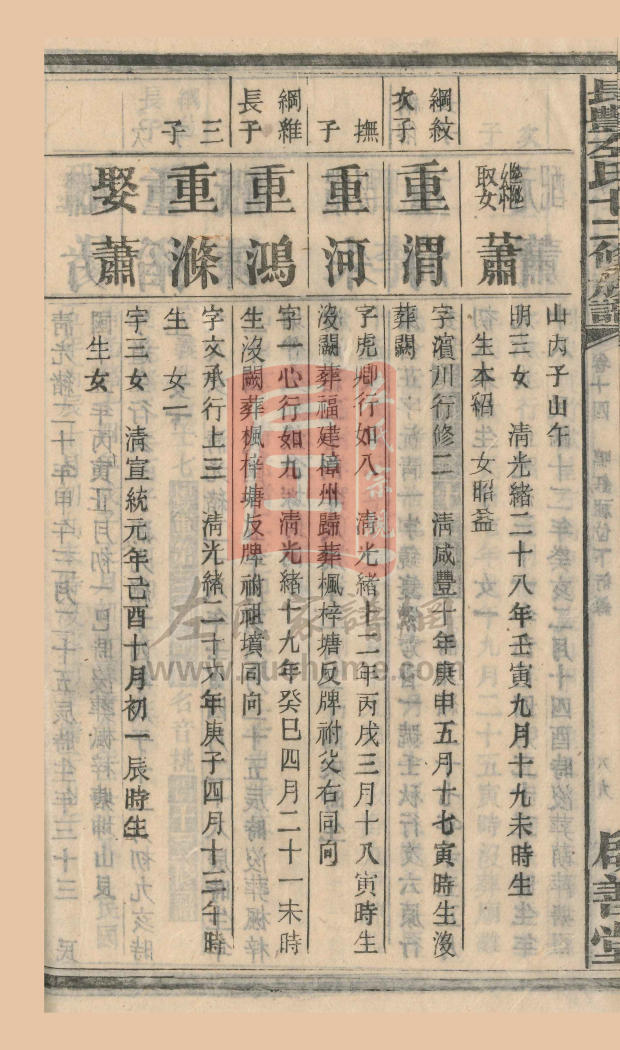 長豐左氏十二修族譜
卷十四
八九
啟善堂
山丙子山午
繼娶
蕭
明三女 清光緒二十八年壬寅九月十九未時生
生本紹 女昭益
綱紋
次子
重渭
字濱川行修二 清咸豐十年庚申五月十七寅時生沒
葬闕
撫
子
重河
字虎卿行如八 清光緒十二年丙戌三月十八寅時生
沒闕葬福建樟州歸葬楓梓塘反牌祔父右同向
綱雅
長子
重鴻
字一心行如九 清光緒十九年癸巳四月二十一未時
生沒闕葬楓梓塘反牌祔祖墳同向
三
子
重滌
字文承行上三 清光緒二十六年庚子四月十三午時
生 女一
娶蕭
字三女 清宣統元年己酉十月初一辰時生
生女
左氏家譜網